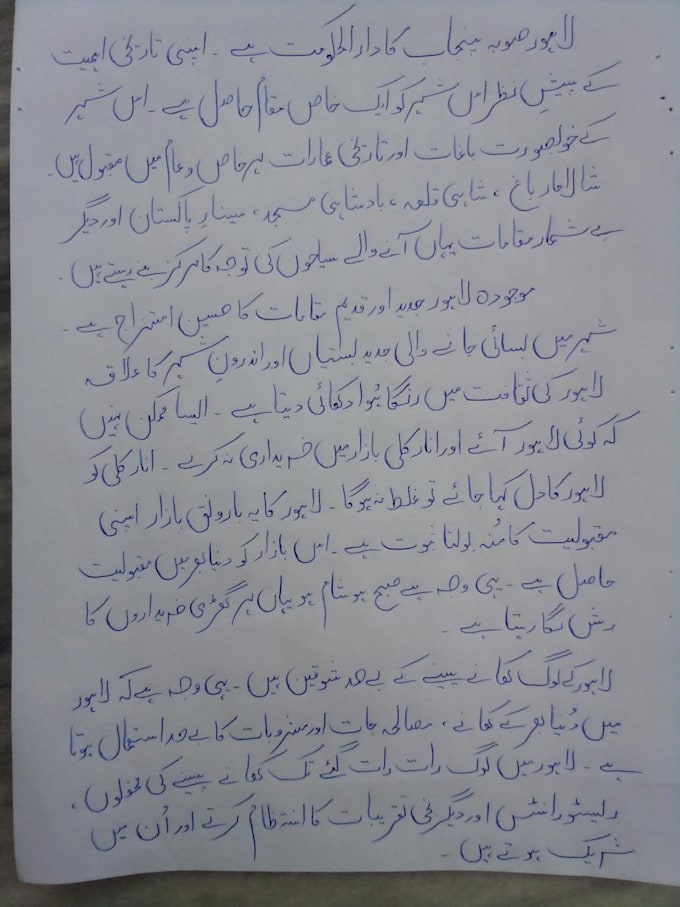 لاہور صوبہ پنجاب کا دارالحکومت ہے ۔ اپنی تاریخی اہمیت
کے پیشِ نظر اس شہر کو ایک خاص مقام حاصل ہے ۔ اس شہر
کے خوبصورت باغات اور تاریخی عمارات ہر خاص و عام میں مقبول ہیں ۔
شالامار باغ ، شاہی قلعہ ، بادشاہی مسجد ، مینارِ پاکستان اور دیگر
بے شمار مقامات یہاں آنے والے سیاحوں کی توجہ کا مرکز بنے رہتے ہیں ۔
موجودہ لاہور جدید اور قدیم مقامات کا حسین امتزاج ہے ۔
شہر میں بسائی جانے والی جدید بستیاں اور اندرونِ شہر کا علاقہ
لاہور کی ثقافت میں رنگا ہُوا دکھائی دیتا ہے ۔ ایسا ممکن نہیں
کہ کوئی لاہور آئے اور انارکلی بازار میں خریداری نہ کرے ۔ انارکلی کو
لاہور کا دل کہا جائے تو غلط نہ ہوگا ۔ لاہور کا یہ بارونق بازار اپنی
مقبولیت کا مُنہ بولتا ثبوت ہے ۔ اس بازار کو دنیا بھر میں مقبولیت
حاصل ہے ۔ یہی وجہ ہے صبح ہو شام ہو یہاں ہر گھڑی خریداروں کا
رش لگا رہتا ہے ۔
لاہور کے لوگ کھانے پینے کے بے حد شوقین ہیں ۔ یہی وجہ ہے کہ لاہور
میں دُنیا بھر کے کھانے ، مصالحہ جات اور مشروبات کا بے حد استعمال ہوتا
ہے ۔ لاہور میں لوگ رات رات گئے تک کھانے پینے کی محفلوں ،
ریسٹورانٹس اور دیگر نجی تقریبات کا انتظام کرتے اور اُن میں
شریک ہوتے ہیں ۔